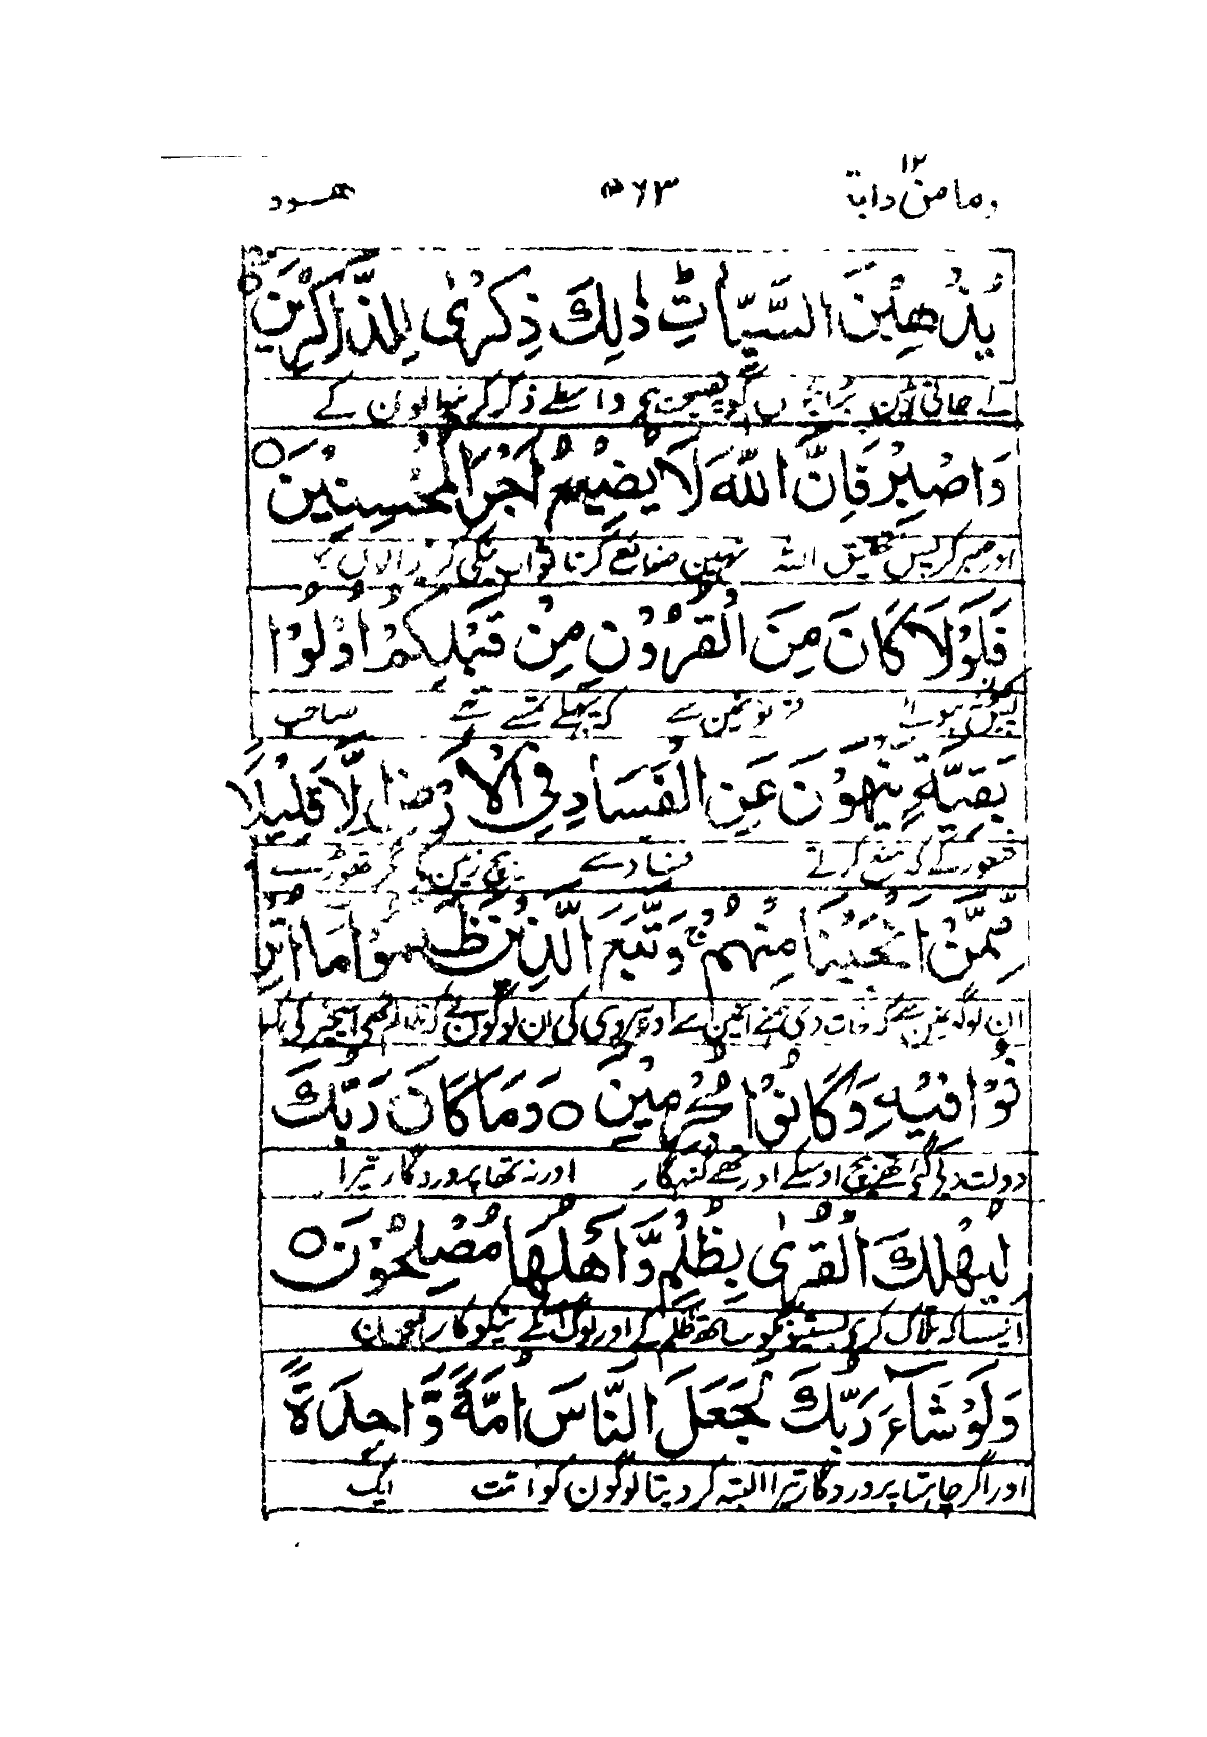 ١٢
وما من دابة ٥٦٣ هــود
يُذْهِبْنَ السَّيِّاٰتِ ذٰلِكَ ذِكْرٰى لِلذّٰكِرِيْنَ ○
لے جاتی ہیں برائیوں کو یہ نصیحت ہے واسطے ذکر کرنیوالون کے
وَاصْبِرْ فَاِنَّ اللّٰهَ لَا يُضِيْعُ اَجْرَ الْمُحْسِنِيْنَ ○
اور صبر کر پس تحقیق اللہ نہین ضائع کرتا ثواب نیکی کرنیوالوں کا
فَلَوْلَا كَانَ مِنَ الْقُرُوْنِ مِنْ قَبْلِكُمْ اُولُوْا
کیون نہ ہوئے قرنون مین سے کہ پہلے تمسے تھے صاحب
بَقِيَّةٍ يَّنْهَوْنَ عَنِ الْفَسَادِ فِى الْاَرْضِ اِلَّا قَلِيْلًا
شعور کے کہ منع کرتے فساد سے بیچ زمین کے مگر تھوڑے
مِّمَّنْ اَنْجَيْنَا مِنْهُمْ ۚ وَتَّبَعَ الَّذِيْنَ ظَلَمُوْا مَا اُتْرِفُ
ان لوگون مین سے کہ نجات دی ہمنے انمین سے اور پیروی کی ان لوگون نے کہ ظالم تھے اس چیز کی کہ
نُوْا فِيْهِ وَكَانُوْا مُجْرِمِيْنَ ○ وَمَا كَانَ رَبُّكَ
دولت دیے گئے تھے بیچ اوسکے اور تھے گنہگار اور نہ تھا پروردگار تیرا
لِيُهْلِكَ الْقُرٰى بِظُلْمٍ وَّاَهْلُهَا مُصْلِحُوْنَ ○
ایسا کہ ہلاک کرے بستیون کو ساتھ ظلم کے اور لوگ انکے نیکوکار ہون
وَلَوْ شَآءَ رَبُّكَ لَجَعَلَ النَّاسَ اُمَّةً وَّاحِدَةً
اور اگر چاہتا پروردگار تیرا البتہ کر دیتا لوگون کو امت ایک